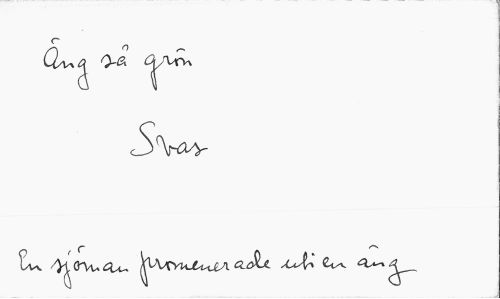 Äng så grön
Svas
En sjöman promenerade uti en äng